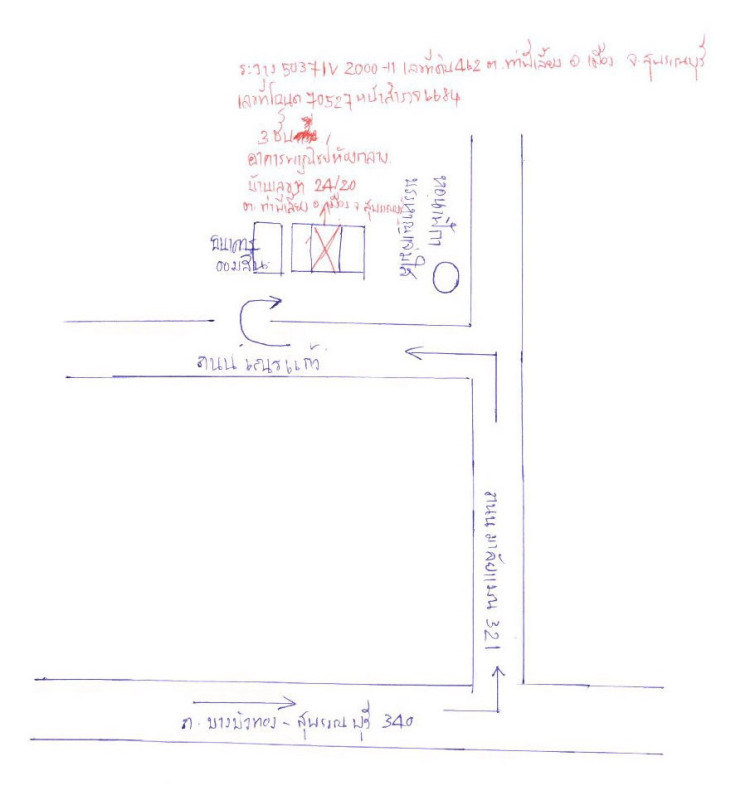 ระวาง 5037 IV 2000-11 เลขที่ดิน 462 ต.ท่าพี่เลี้ยง อ เมือง จ.สุพรรณบุรี
เลขที่โฉนด 70527 หน้าสำรวจ 6684
3 ชั้น
อาคารพาณิชย์ห้องกลาง
บ้านเลขที่ 24/20
ต.ท่าพี่เลี้ยง อ เมือง จ สุพรรณบุรี
ธนาคาร
ออมสิน
หอนาฬิกา
บรรหารแจ่มใส
ถนน เณรแก้ว
ถนน มาลัยแมน 321
ถ. บางบัวทอง - สุพรรณบุรี 340